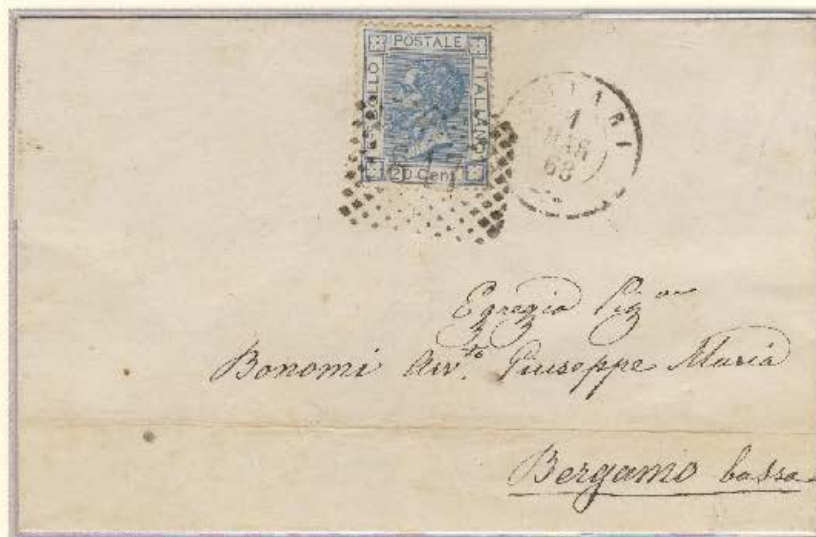 POSTALE
BOLLO
ITALIANO
20 Cent
1
MAR
68
Egregio Sig.or
Bonomi Avv.to Giuseppe Maria
Bergamo bassa